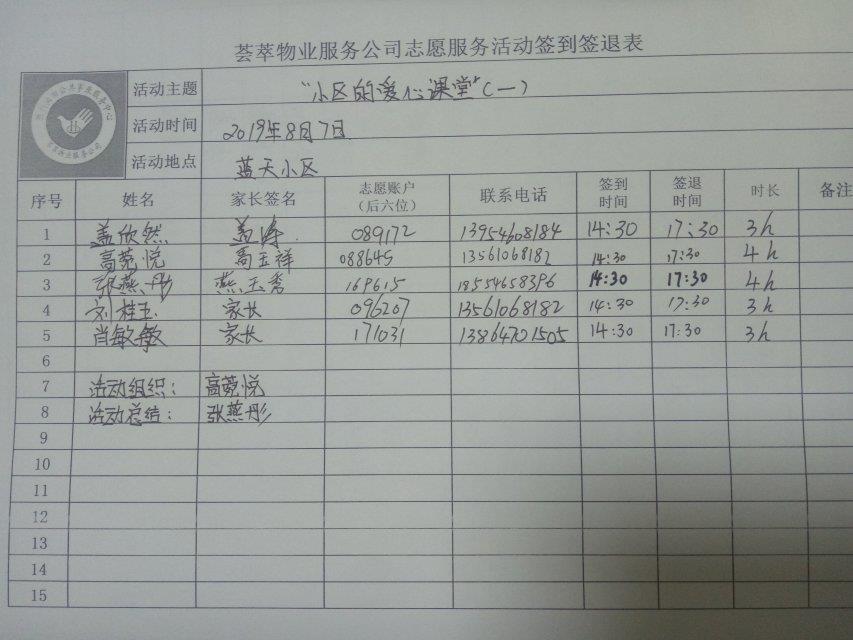 荟萃物业服务公司志愿服务活动签到签退表
活动主题 “小区的爱心课堂”(一)
活动时间 2019年8月7日
活动地点 蓝天小区
序号 姓名 家长签名 志愿账户(后六位) 联系电话 签到时间 签退时间 时长 备注
1 盖欣然 盖涛 089172 13954608184 14:30 17:30 3h
2 高菀悦 高玉祥 088645 13561068182 14:30 17:30 4h
3 张燕彤 燕玉秀 169615 18554658396 14:30 17:30 4h
4 刘桂玉 家长 096207 13561068182 14:30 17:30 3h
5 肖敏敏 家长 171031 13864701505 14:30 17:30 3h
6
7 活动组织: 高菀悦
8 活动总结: 张燕彤
9
10
11
12
13
14
15